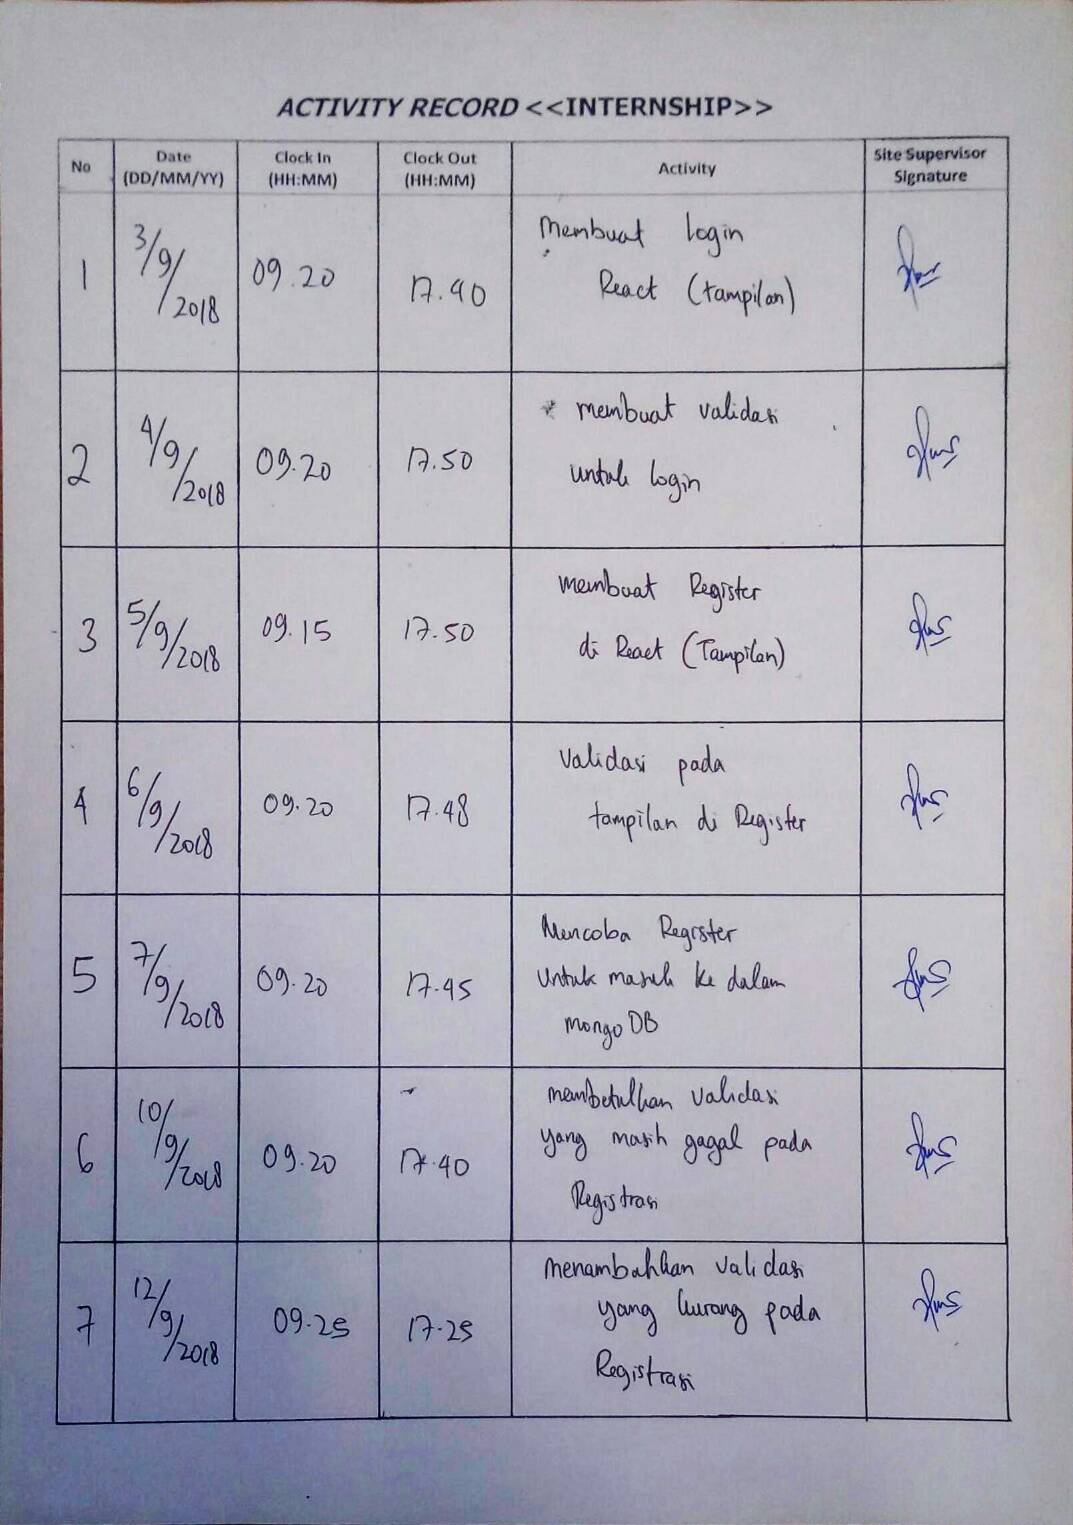 ACTIVITY RECORD <<INTERNSHIP>>
No Date (DD/MM/YY) Clock In (HH:MM) Clock Out (HH:MM) Activity Site Supervisor Signature
1 3/9/2018 09.20 17.40 Membuat login
React (tampilan)
2 4/9/2018 09.20 17.50 membuat validasi
untuk login
3 5/9/2018 09.15 17.50 membuat Register
di React (Tampilan)
4 6/9/2018 09.20 17.48 Validasi pada
tampilan di Register
5 7/9/2018 09.20 17.45 Mencoba Register
untuk masuk ke dalam
mongo DB
6 10/9/2018 09.20 17.40 membetulkan validasi
yang masih gagal pada
Registrasi
7 12/9/2018 09.25 17.25 menambahkan validasi
yang kurang pada
Registrasi